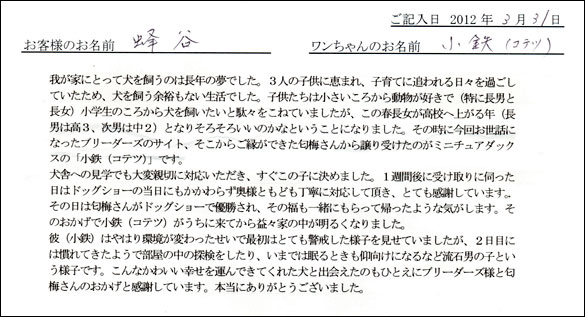 ご記入日 2012 年 3月 31日
お客様のお名前 蜂谷 ワンちゃんのお名前 小鉄(コテツ)
我が家にとって犬を飼うのは長年の夢でした。3人の子供に恵まれ、子育てに追われる日々を過ごし
ていたため、犬を飼う余裕もない生活でした。子供たちは小さいころから動物が好きで(特に長男と
長女)小学生のころから犬を飼いたいと駄々をこねていましたが、この春長女が高校へ上がる年(長
男は高3、次男は中2)となりそろそろいいのかなということになりました。その時に今回お世話に
なったブリーダーズのサイト、そこからご縁ができた匂梅さんから譲り受けたのがミニチュアダック
スの「小鉄(コテツ)」です。
犬舎への見学でも大変親切に対応いただき、すぐこの子に決めました。1週間後に受け取りに伺った
日はドッグショーの当日にもかかわらず奥様ともども丁寧に対応して頂き、とても感謝しています。
その日は匂梅さんがドッグショーで優勝され、その福も一緒にもらって帰ったような気がします。そ
のおかげで小鉄(コテツ)がうちに来てから益々家の中が明るくなりました。
彼(小鉄)はやはり環境が変わったせいで最初はとても警戒した様子を見せていましたが、2日目に
は慣れてきたようで部屋の中の探検をしたり、いまでは眠るときも仰向けになるなど流石男の子とい
う様子です。こんなかわいい幸せを運んできてくれた犬と出会えたのもひとえにブリーダーズ様と匂
梅さんのおかげと感謝しています。本当にありがとうございました。